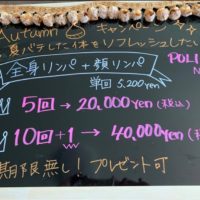 Autumn キャンペーン
夏バテした体をリフレッシュしたい
POLI
全身リンパ + 顔リンパ
単回 5,200yen
5回→20,000yen (税込)
10回+1→40,000yen (税
期限無し! プレゼント可